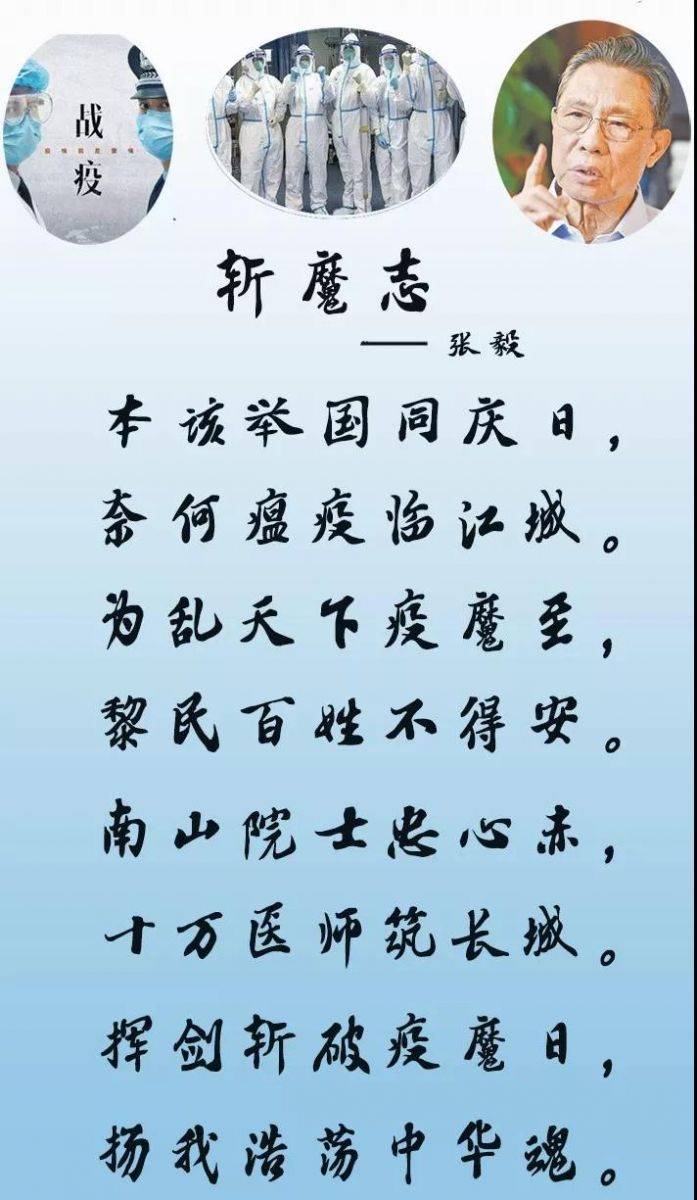 战
疫
斩魔志
——张毅
本该举国同庆日，
奈何瘟疫临江城。
为乱天下疫魔至，
黎民百姓不得安。
南山院士忠心赤，
十万医师筑长城。
挥剑斩破疫魔日，
扬我浩荡中华魂。